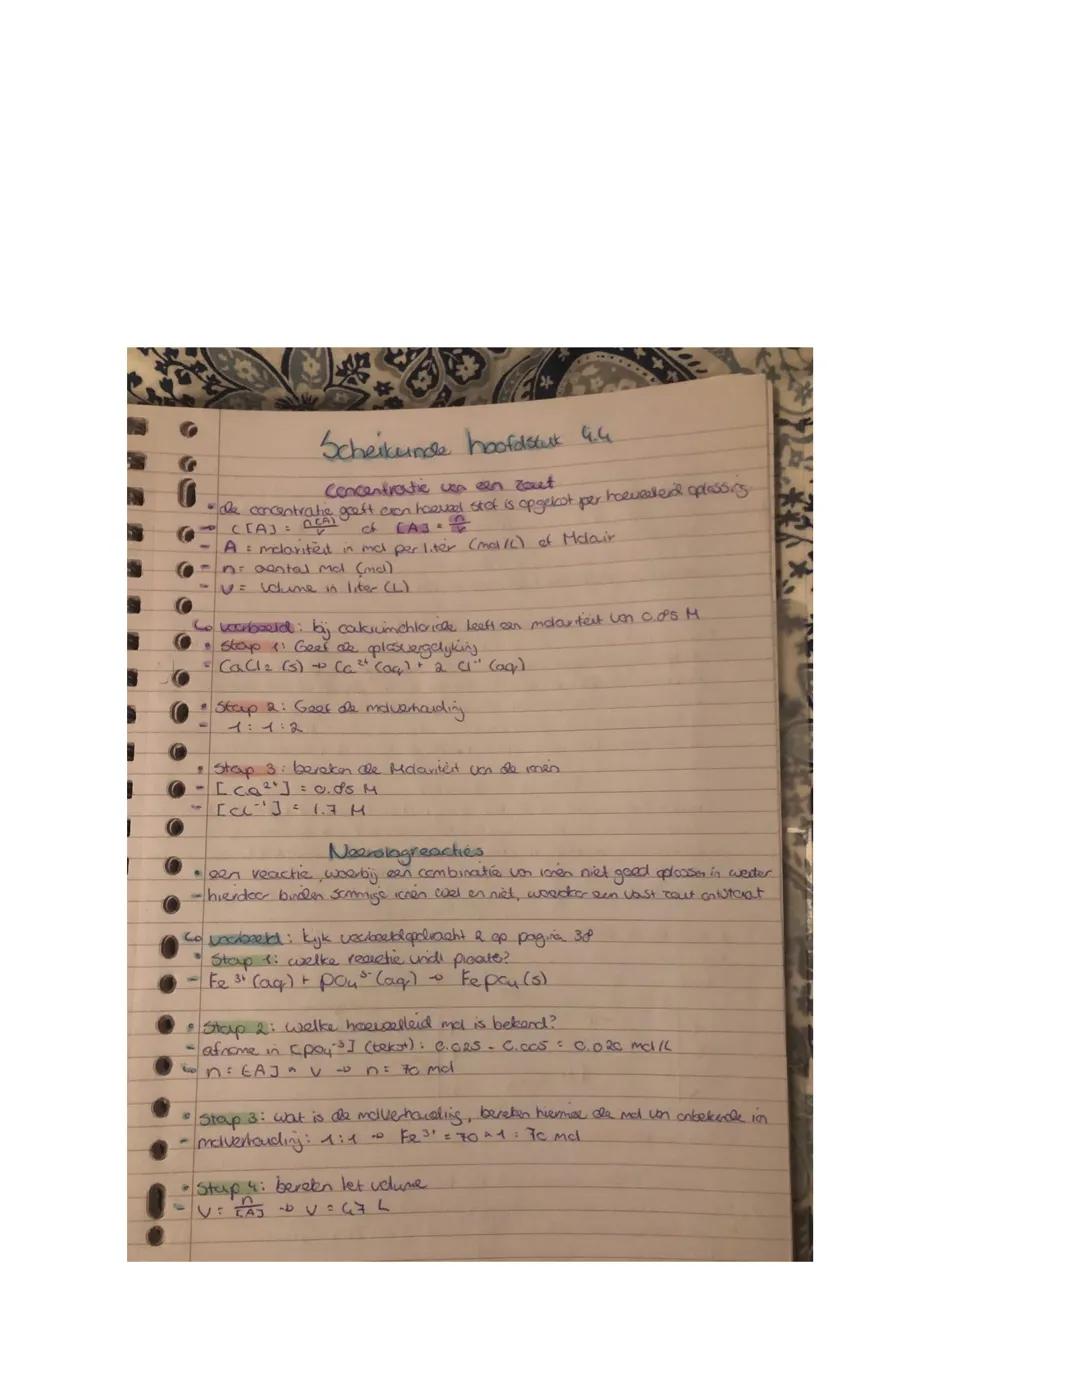 Scheikunde hoofdstuk 4.4
Concentratie van een zout
• de concentratie geeft aan hoeveel stof is opgelost per hoeveelheid oplossing
→ C[A] = n(A)/V of [A] = n/V
- A = molariteit in mol per liter (mol/L) of Molair
- n = aantal mol (mol)
- V = volume in liter (L)
↳ voorbeeld: bij calciumchloride heeft een molariteit van 0.85 M
• Stap 1: Geef de oplosvergelijking
- CaCl₂ (s) → Ca²⁺ (aq) + 2 Cl⁻ (aq)
• Stap 2: Geef de molverhouding
- 1 : 1 : 2
• Stap 3: bereken de Molariteit van de ionen
- [Ca²⁺] = 0.85 M
- [Cl⁻¹] = 1.7 M
Neerslagreacties
• een reactie, waarbij een combinatie van ionen niet goed oplossen in water
- hierdoor binden sommige ionen wel en niet, waardoor een vast zout ontstaat
↳ voorbeeld: kijk voorbeeldopdracht 2 op pagina 38
• Stap 1: welke reactie vindt plaats?
- Fe³⁺ (aq) + PO₄³⁻ (aq) → FePO₄ (s)
• Stap 2: welke hoeveelheid mol is bekend?
- afname in [PO₄⁻³] (tekst): 0.025 - 0.005 = 0.020 mol/L
↳ n = [A] × V → n = 70 mol
• Stap 3: wat is de molverhouding, bereken hiermee de mol van onbekende ion
- molverhouding: 1:1 → Fe³⁺ = 70 × 1 = 70 mol
• Stap 4: bereken het volume
- V = n/[A] → V = 47 L